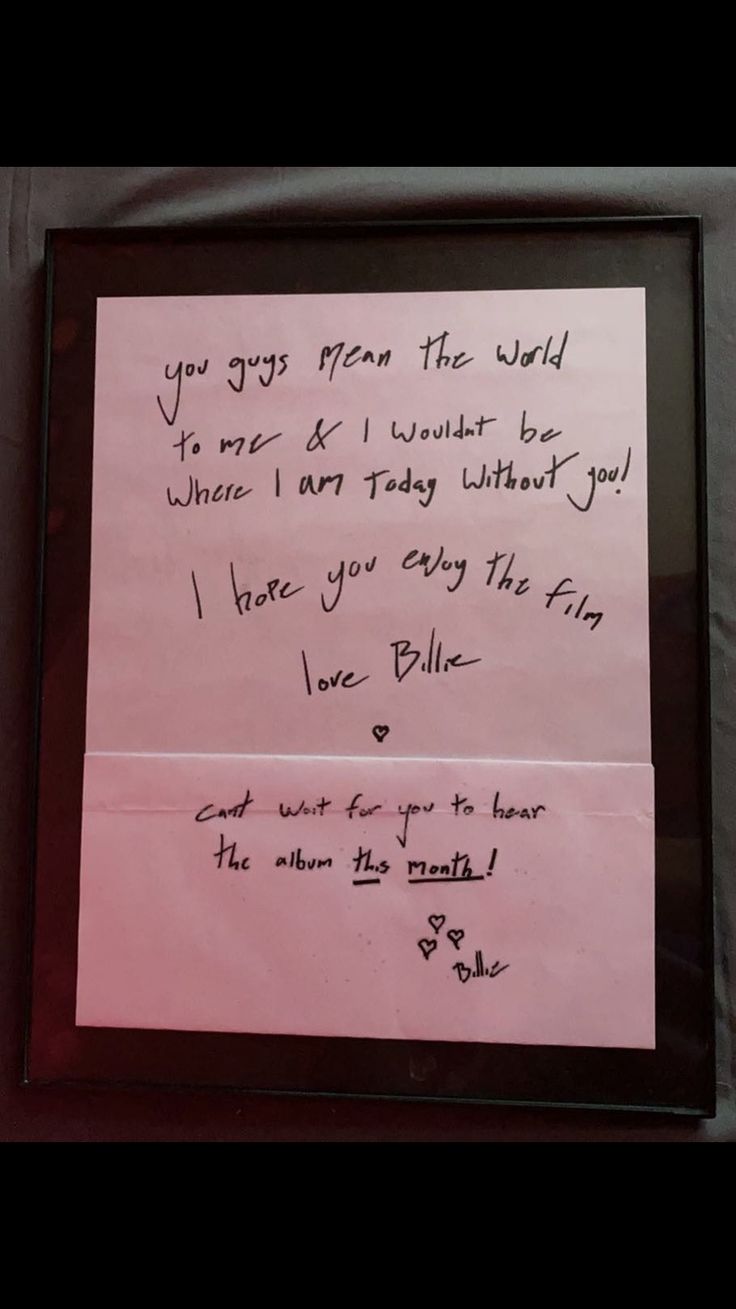 you guys mean the world
to me & I wouldnt be
where I am today without you!
I hope you enjoy the film
love Billie
♡
cant wait for you to hear
the album this month!
♡
♡ ♡
Billie